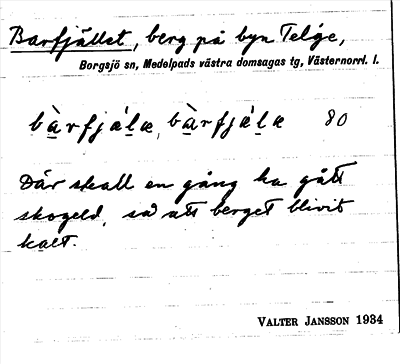 Barfjället, berg på byn Telge,
Borgsjö sn, Medelpads västra domsagas tg, Västernorrl. l.
bàrfjáḷæ, bàrfjáḷæ 80
Där skall en gång ha gått
skogeld, så att berget blivit
kalt.
VALTER JANSSON 1934